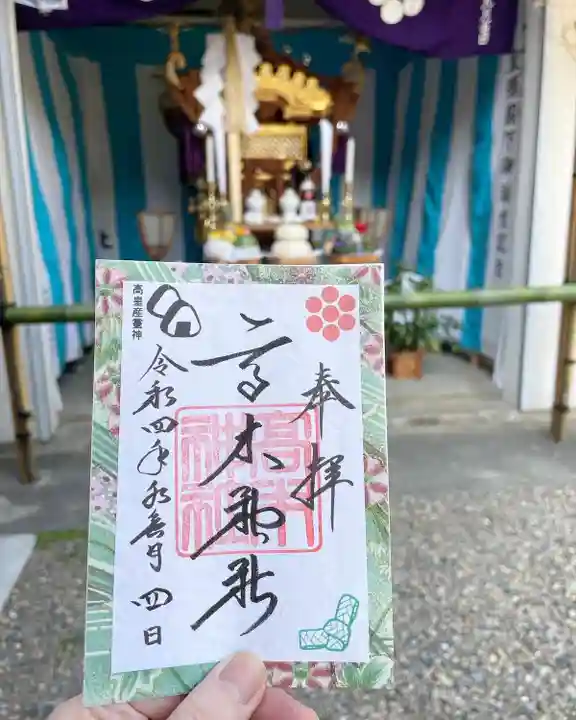 奉拝
高木神社
高木神社
令和四年水無月四日
高皇産霊神